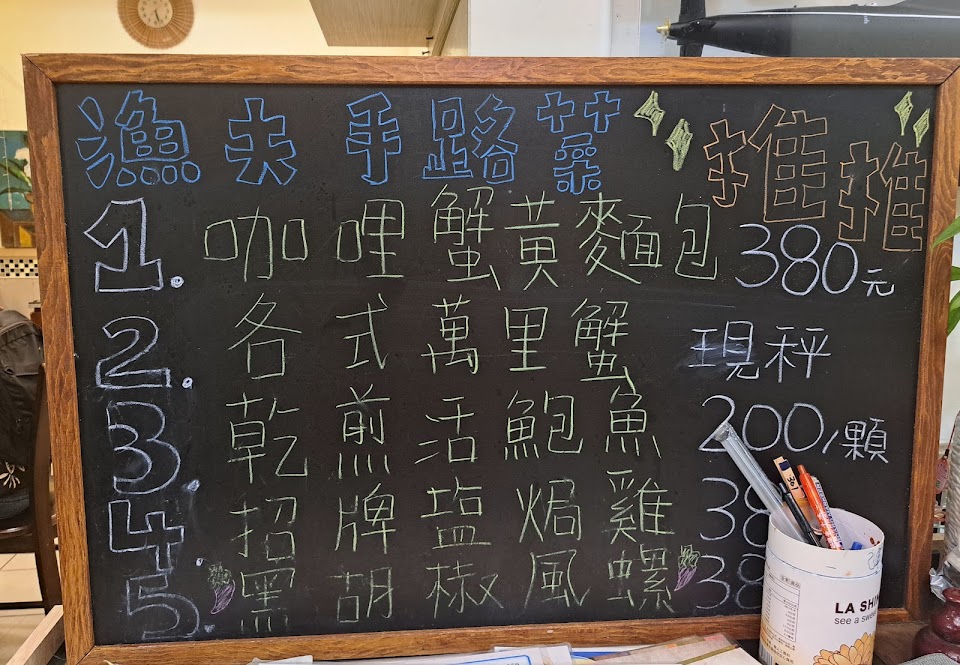 漁夫手路菜 推推
1. 咖哩蟹黃麵包 380元
2. 各式萬里蟹 現秤
3. 乾煎活鮑魚 200/顆
4. 招牌塩焗雞 38
5. 黑胡椒風螺 38
LA SHIN
see a swe